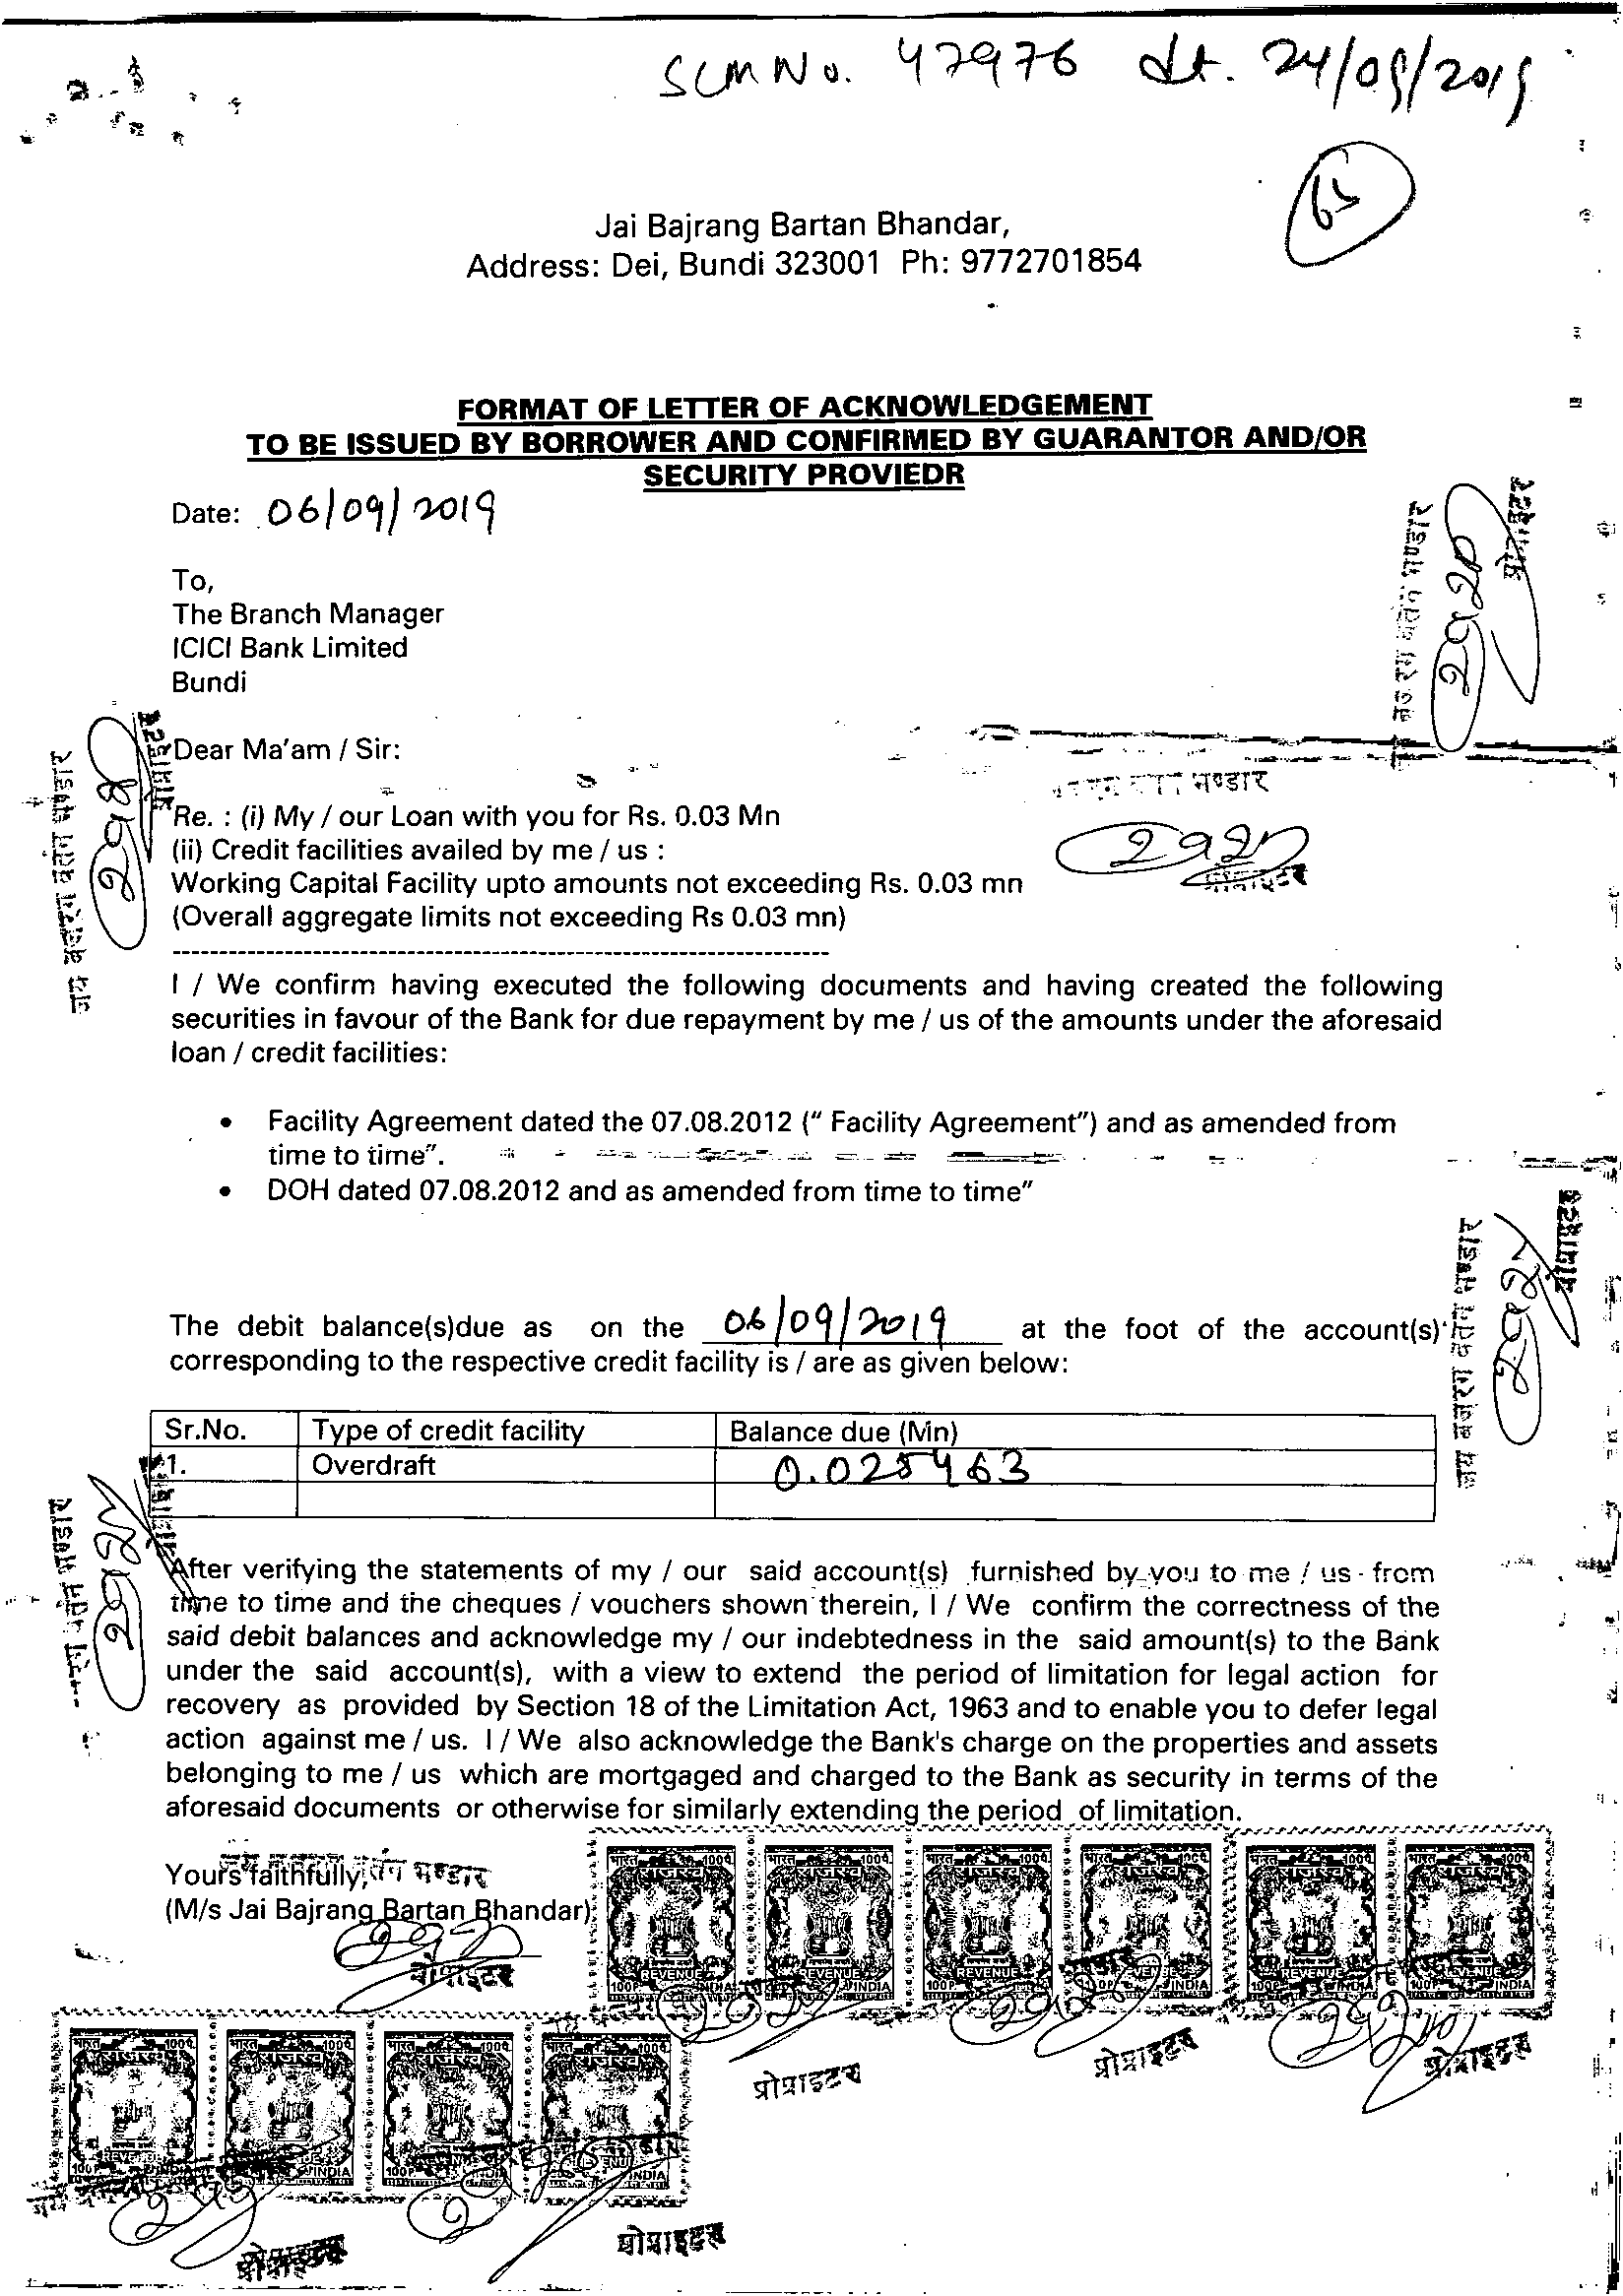 SCM No. 47976 dt. 24/09/2019
65
Jai Bajrang Bartan Bhandar,
Address: Dei, Bundi 323001 Ph: 9772701854
FORMAT OF LETTER OF ACKNOWLEDGEMENT
TO BE ISSUED BY BORROWER AND CONFIRMED BY GUARANTOR AND/OR
SECURITY PROVIEDR
Date: 06/09/2019
To,
The Branch Manager
ICICI Bank Limited
Bundi
Dear Ma'am / Sir:
भण्डार
Re. : (i) My / our Loan with you for Rs. 0.03 Mn
(ii) Credit facilities availed by me / us :
Working Capital Facility upto amounts not exceeding Rs. 0.03 mn
प्रोप्राइटर
(Overall aggregate limits not exceeding Rs 0.03 mn)
I / We confirm having executed the following documents and having created the following
securities in favour of the Bank for due repayment by me / us of the amounts under the aforesaid
loan / credit facilities:
• Facility Agreement dated the 07.08.2012 (" Facility Agreement") and as amended from
time to time".
• DOH dated 07.08.2012 and as amended from time to time"
The debit balance(s)due as on the 06/09/2019 at the foot of the account(s)
corresponding to the respective credit facility is / are as given below:
जय बजरंग बर्तन भण्डार
प्रोप्राइटर
Sr.No. Type of credit facility Balance due (Mn)
1. Overdraft 0.025463
After verifying the statements of my / our said account(s) furnished by you to me / us from
time to time and the cheques / vouchers shown therein, I / We confirm the correctness of the
said debit balances and acknowledge my / our indebtedness in the said amount(s) to the Bank
under the said account(s), with a view to extend the period of limitation for legal action for
recovery as provided by Section 18 of the Limitation Act, 1963 and to enable you to defer legal
action against me / us. I / We also acknowledge the Bank's charge on the properties and assets
belonging to me / us which are mortgaged and charged to the Bank as security in terms of the
aforesaid documents or otherwise for similarly extending the period of limitation.
Yours faithfully,
(M/s Jai Bajrang Bartan Bhandar)
प्रोप्राइटर
भारत राजस्व REVENUE INDIA
प्रोप्राइटर
प्रोप्राइटर
प्रोप्राइटर
प्रोप्राइटर
प्रोप्राइटर